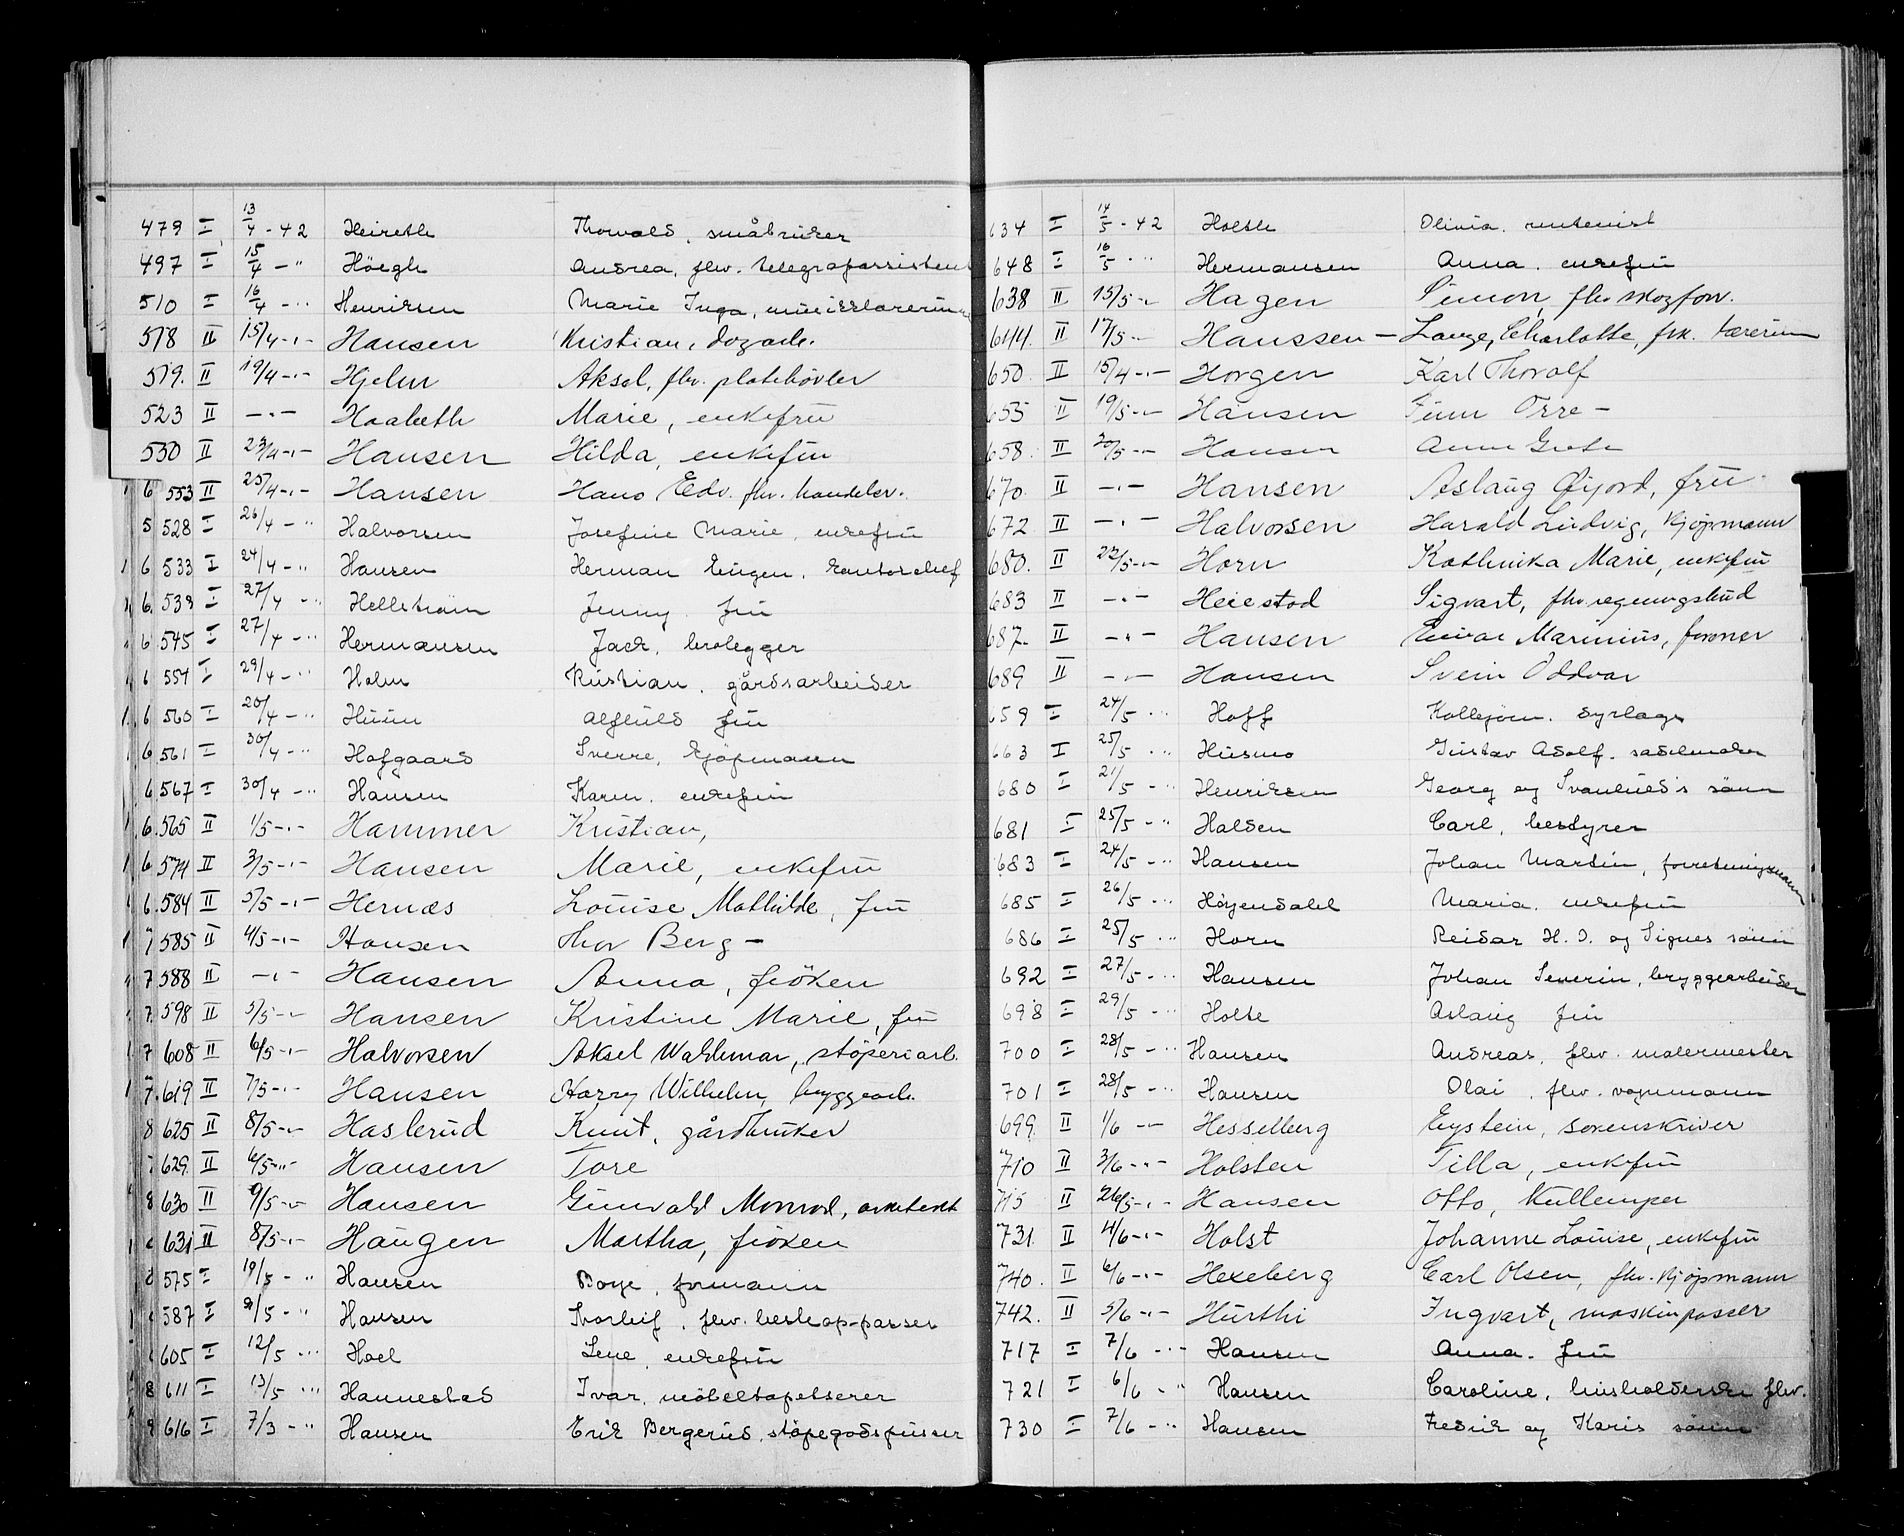 479 I 13/4 - 42 Heireth Thorvald, småbruker
497 I 15/4 - " Höegh Andrea, fhv. telegrafassistent
510 I 16/4 - " Henriksen Marie Inga,
518 II 15/4 - " - Hansen Kristian,
519. II 19/4 - " - Hjelm Aksel, fhv. platehøvler
523 II - " - Haabeth Marie, enkefru
530 II 23/4 - " - Hansen Hilda, enkefru
553 II 25/4 - " - Hansen Hans Edv. fhv. handelsr.
528 I 26/4 - " Halvorsen Josefine Marie, enkefru
6 533 I 24/4 - " Hansen Herman Eugen, kontorchef
6. 538 I 27/4 - " Hellstrøm Jenny fru
6 545 I 27/4 - " Hermansen Jack, brolegger
554 I 29/4 - " Holm Kristian, gårdsarbeider
6 560 I 20/4 - " Huun Alfhild fru
6 561 I 30/4 - " Hofgaard Sverre, kjøpmann
6 567 I 30/4 - " Hansen Karen, enkefru
6. 565 II 1/5 - " - Hammer Kristian,
6 574 II 3/5 - " - Hansen Marie, enkefru
6. 584 II 5/5 - " - Hernæs Louise Mathilde, fru
7 585 II 4/5 - " - Hansen Thor Berg -
7 588 II - " - Hansen Anna, fröken
7. 598 II 5/5 - " - Hansen Kristine Marie, fru
7 608 II 6/5 - " - Halvorsen Aksel Waldemar, støperiarb.
7. 619 II 7/5 - " - Hansen Harry Wilhelm, bryggearb.
8 625 II 8/5 - " - Haslerud Knut, gårdbruker
629. II 6/5 - " - Hansen Tore
8 630 II 9/5 - " - Hansen Gunvald Monrad, arkitekt
631 II 8/5 - " - Haugen Martha, frøken
575 I 10/5 - " Hansen Boye, formann
587 I 9/5 - " Hansen Thorleif, fhv.
605 I 12/5 - " Hoel Lene, enkefru
8 611 I 13/5 - " Hannestad Ivar, möbeltapetserer
616 I 7/3 - " Hansen Erik Bergerud, støpegodspusser
634 I 14/5 - 42 Holth Olivia, rentenist
648 I 16/5 - " Hermansen Anna, enkefru
638 II 15/5 - " - Hagen Simon, fhv skogforv.
644. II 17/5 - " - Hanssen - Lange, Charlotte, frk. lærerinne
650. II 15/4 - " - Horgen Karl Thoralf
655 II 19/5 - " - Hansen Finn Orre -
658. II 20/5 - " - Hansen Anne Grete
670. II - " - Hansen Aslaug Øijord, fru
672 II - " - Halvorsen Harald Ludvig, kjøpmann
680. II 22/5 - " - Horn Kathinka Marie, enkefru
683 II - " - Heiestad Sigvart, fhv regningsbud
687. II - " - Hansen Einar Marinius, former
689 II - " - Hansen Svein Oddvar
659 I 24/5 - " Hoff Kolbjørn, dyrlæge
663 I 25/5 - " Husmo Gustav Adolf, sadelmaker
680 I 21/5 - " Henriksen Georg og Svanhild's sønn
681 I 25/5 - " Halden Carl, bestyrer
683 I 24/5 - " Hansen Johan Martin, forretningsmann
685 I 26/5 - " Høyendahl Maria, enkefru
686 I 25/5 - " Horn Reidar H. J. og Signes sönn
692 I 27/5 - " Hansen Johan Severin, bryggearbeider
698 I 29/5 - " Holte Aslaug fru
700 I 28/5 - " Hansen Andreas, fhv. malermester
701 I 28/5 - " Hansen Olai, fhv. vognmann
699. II 1/6 - " - Hesselberg Eystein, sorenskriver
710 II 3/6 - " - Holsten Tilla, enkefru
715 II 26/5 - " - Hansen Otto, kullemper
731. II 4/6 - " - Holst Johanne Louise, enkefru
740. II 6/6 - " - Hexeberg Carl Olsen, fhv. kjøpmann
742. II 5/6 - " - Hurthi Ingvart, maskinpasser
717 I 7/6 - " Hansen Anna, fru
721 I 6/6 - " Hansen Caroline, husholderske fhv.
730 I 7/6 - " Hansen Fredrik og Karis sønn